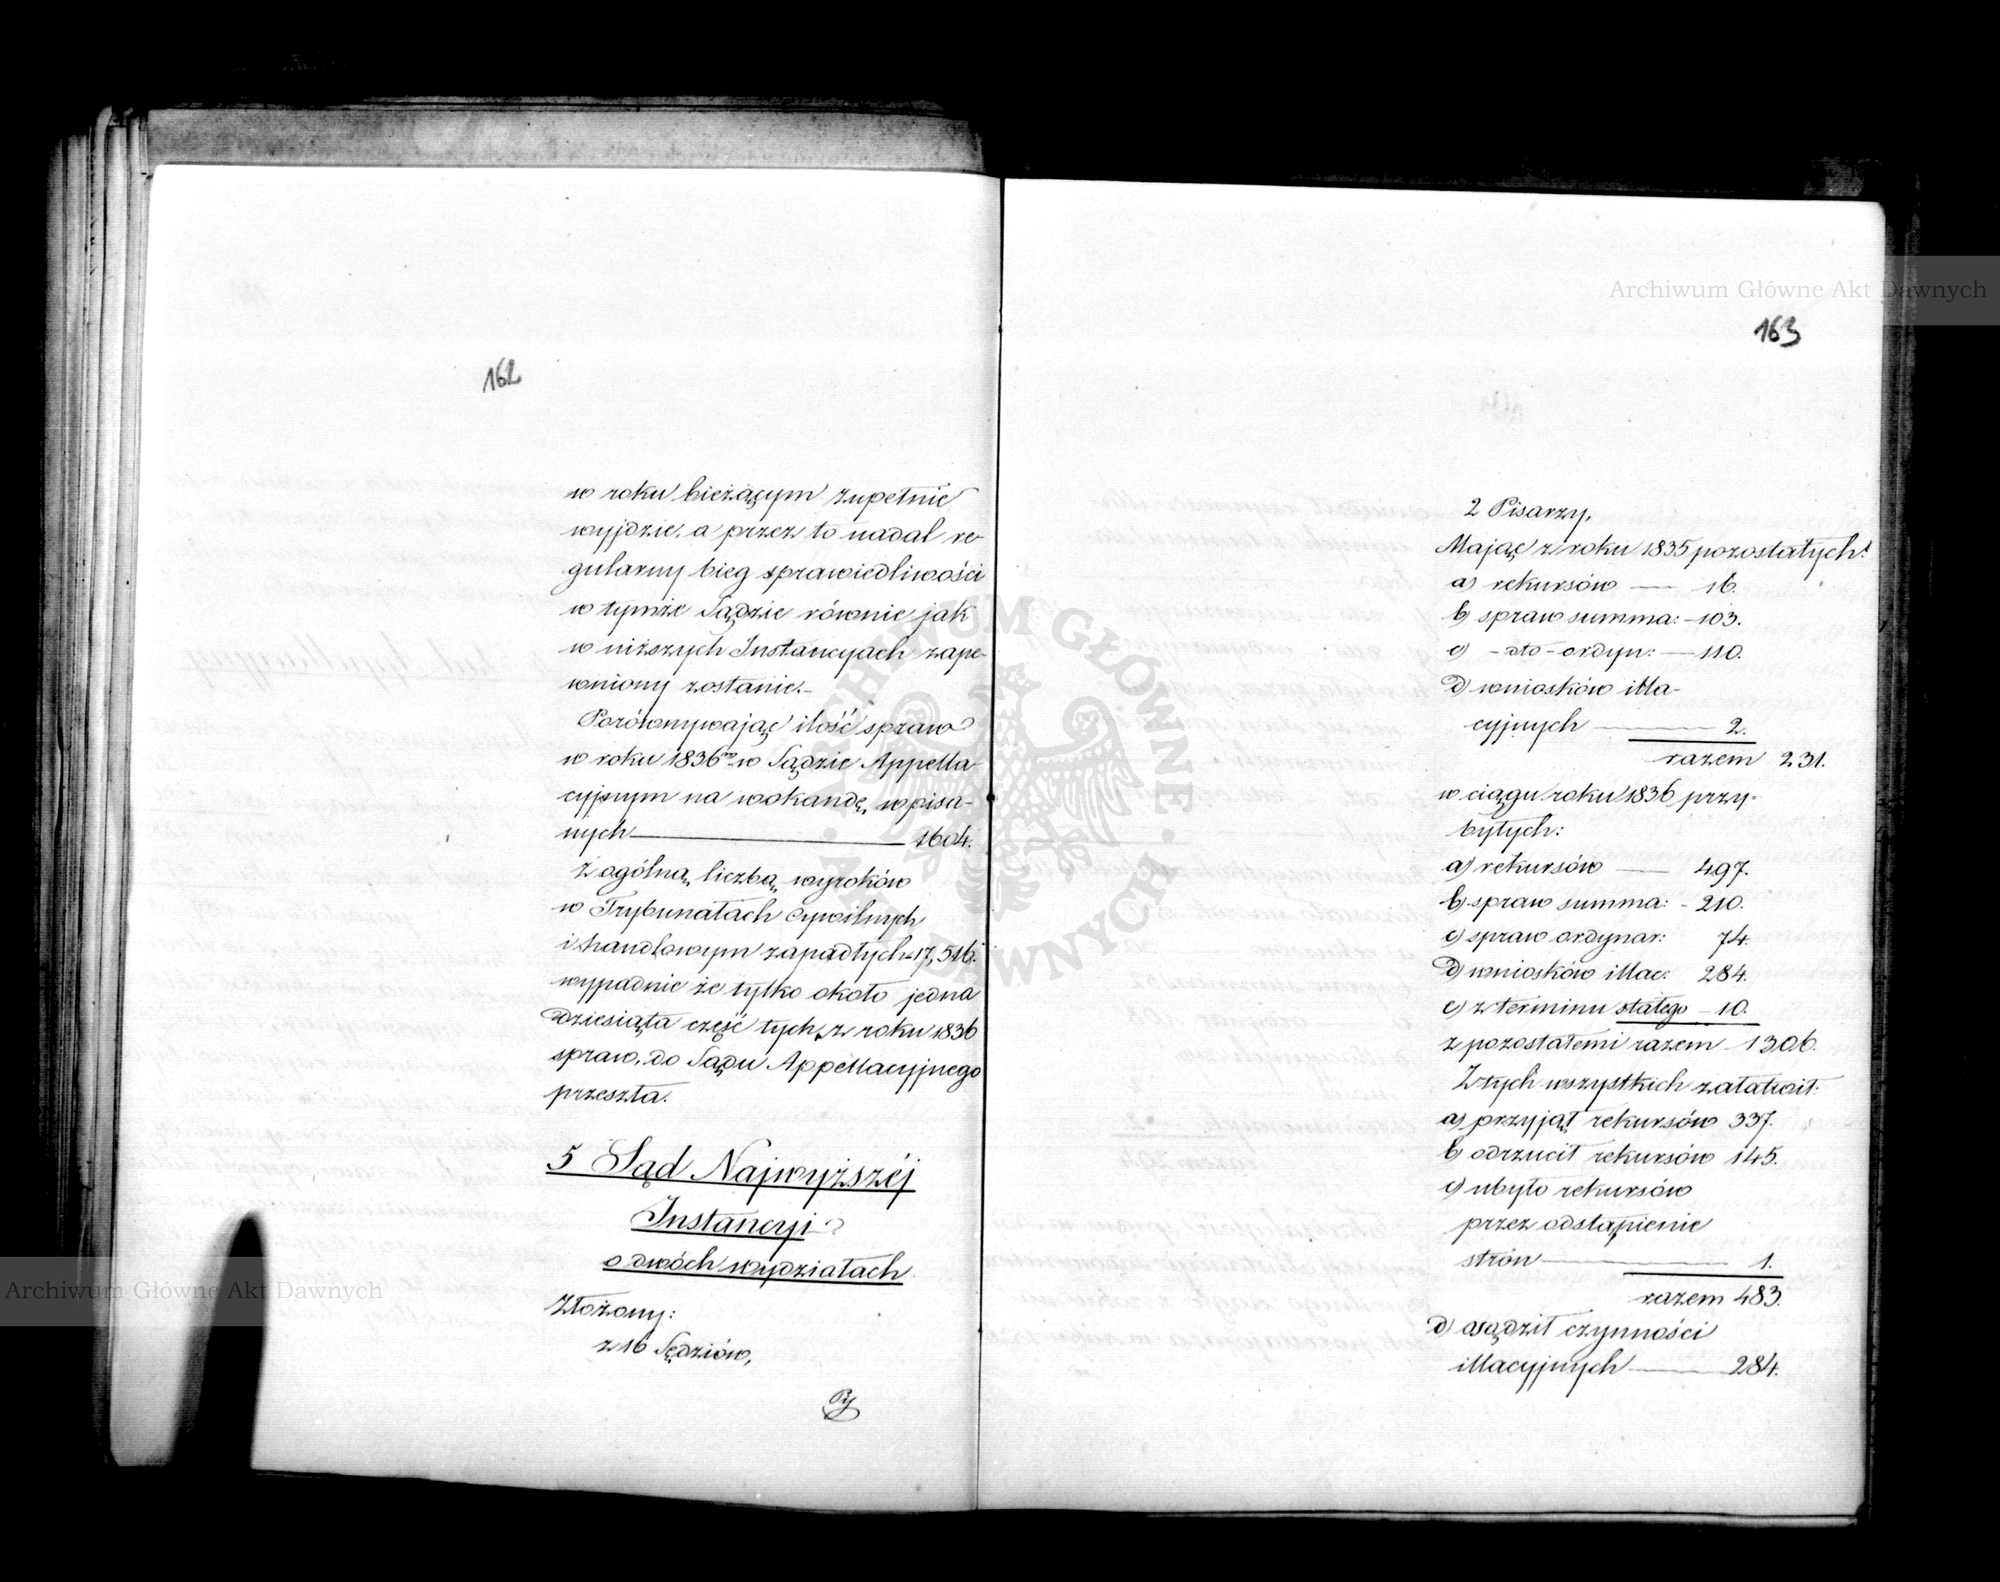 162
w roku bieżącym zupełnie
wyjdzie, a przez to nadal re-
gularny bieg sprawiedliwości
w tymże Sądzie równie jak
w niższych Instancyach zape-
wniony zostanie.-
Porównywając ilość spraw
w roku 1836ym w Sądzie Appella-
cyjnym na wokandę wpisa-
nych 1604.
z ogólną liczbą wyroków
w Trybunałach Cywilnych
i handlowym zapadłych 17,516.
wypadnie że tylko około jedna
dziesiąta część tych z roku 1836
spraw, do Sądu Appellacyjnego
przeszła.
5 Sąd Najwyższéj
Instancyi
o dwóch wydziałach
Złożony:
z 16 Sędziów,
163
2 Pisarzy,
Mając z roku 1835 pozostałych:
a) rekursów — 16.
b) spraw summa: - 103.
c) - dto - ordyn: — 110.
d) wniosków illa-
cyjnych — 2.
razem 231.
w ciągu roku 1836 przy-
byłych:
a) rekursów — 497.
b) spraw summa: - 210.
c) spraw ordynar: 74.
d) wniosków illac: 284.
e) z terminu stałego - 10.
z pozostałemi razem 1306.
Z tych wszystkich załatwił:
a) przyjął rekursów 337.
b) odrzucił rekursów 145.
c) ubyło rekursów
przez odstąpienie
strón — 1.
razem 483.
d) osądził czynności
illacyjnych — 284.
Archiwum Główne Akt Dawnych
Archiwum Główne Akt Dawnych
ARCHIWUM GŁÓWNE · AKT DAWNYCH ·